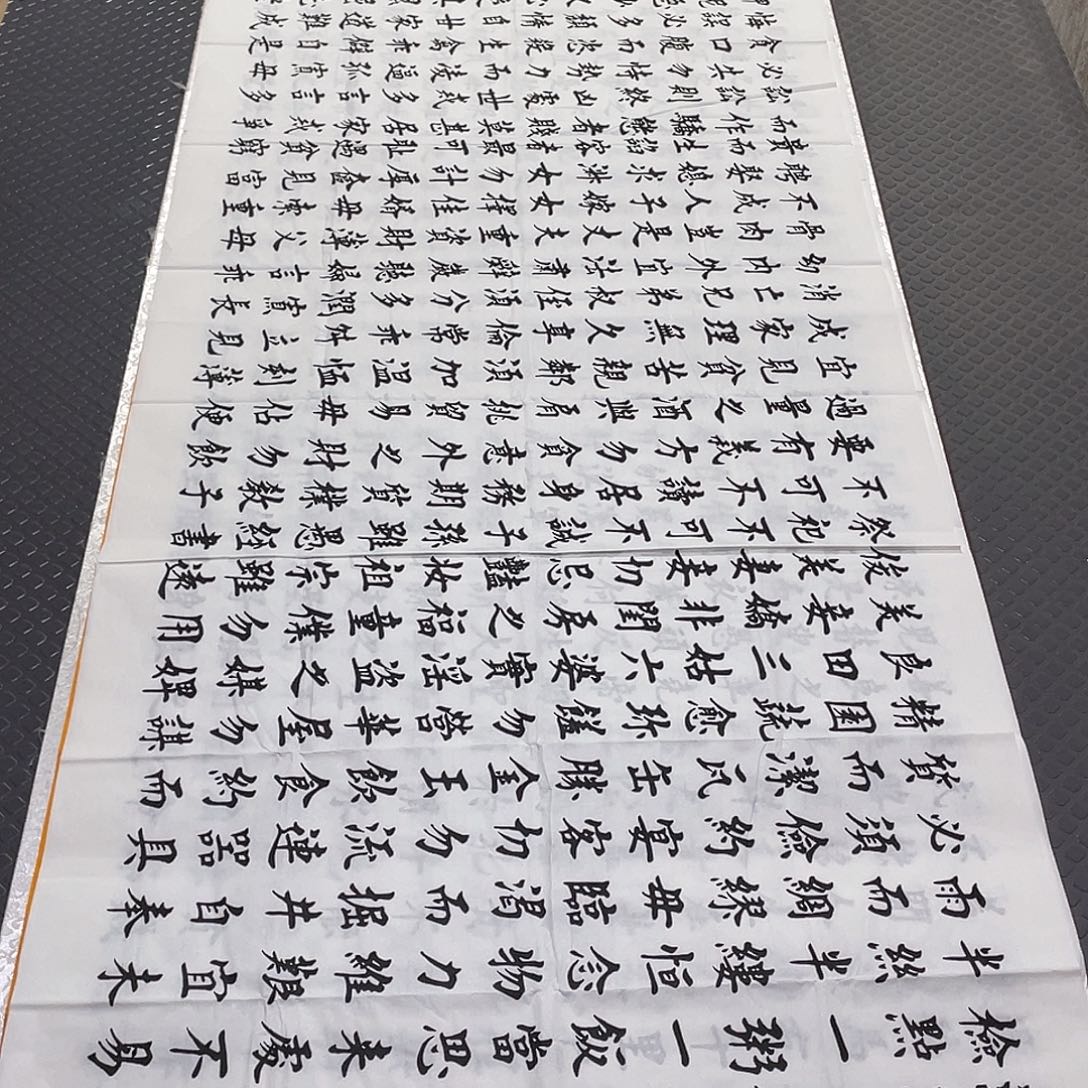 檢點一粥一飯當思来處不易
半絲半縷恒念物力維艱宜未
雨而綢繆毋臨渴而掘井自奉
必須儉約宴客切勿流連器具
質而潔瓦缶勝金玉飲食約而
精園蔬愈珍饈勿營華屋勿謀
良田三姑六婆實淫盗之媒婢
美妾嬌非閨房之福童僕勿用
俊美妻妾切忌豔妝祖宗雖遠
祭祀不可不誠子孫雖愚經書
不可不讀居身務期質樸教子
要有義方勿貪意外之財勿飲
過量之酒與肩挑貿易毋佔便
宜見貧苦親鄰須加温恤刻薄
成家理無久享倫常乖舛立見
消亡兄弟叔侄須分多潤寡長
幼内外宜法肅辭嚴聽婦言乖
骨肉豈是丈夫重資財薄父母
不成人子嫁女擇佳婿毋索重
聘娶媳求淑女勿計厚奩見富
貴而生諂容者最可耻遇貧窮
而作驕態者賤莫甚居家戒爭
訟訟則終凶處世戒多言言多
必失勿恃勢力而凌逼孤寡毋
貪口腹而恣殺生禽乖僻自是
悔誤必多頹惰自甘家道難成